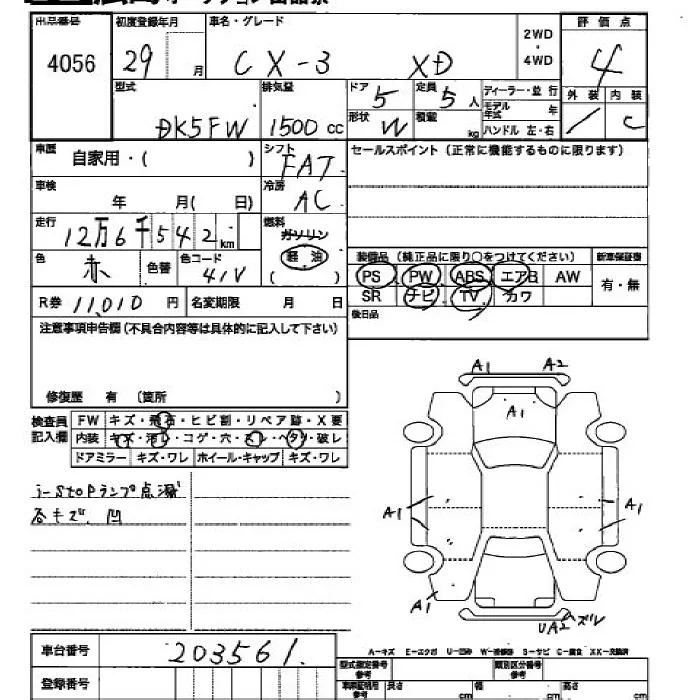 出品番号 初度登録年月 車名・グレード 2WD・4WD 評価点
4056 29 月 CX-3 XD 4
型式 排気量 ドア 5 定員 5 人 ディーラー・並 行 外装 内装
DK5FW 1500 cc 形状 W 積載 kg モデル年式 年 / C
ハンドル 左・右
車歴 自家用・( ) シフト FAT セールスポイント (正常に機能するものに限ります)
車検 年 月( 日) 冷房 AC
走行 12万6千542km 燃料 ガソリン
軽油
( )
色 赤 色替 色コード 41V
装備品 (純正品に限り○をつけてください) 新車保証書
PS PW ABS エアB AW 有・無
R券 11,010 円 名変期限 月 日 SR ナビ TV カワ
後日品
注意事項申告欄 (不具合内容等は具体的に記入して下さい)
修復歴 有 (箇所 )
検査員記入欄 FW キズ・飛石・ヒビ割・リペア跡・X要
内装 キズ・汚レ・コゲ・穴・スレ・ヘタリ・破レ
ドアミラー キズ・ワレ ホイール・キャップ キズ・ワレ
A1 A2
A1
i-stopランプ点滅
各キズ、凹
A1 A1
A1 UA2 ズル
A-キズ E-エクボ U-凹み W-補修跡 S-サビ C-腐食 XX-交換済
車台番号 203561.
型式指定番号 類別区分番号
登録番号 長さ cm 幅 cm 高さ cm